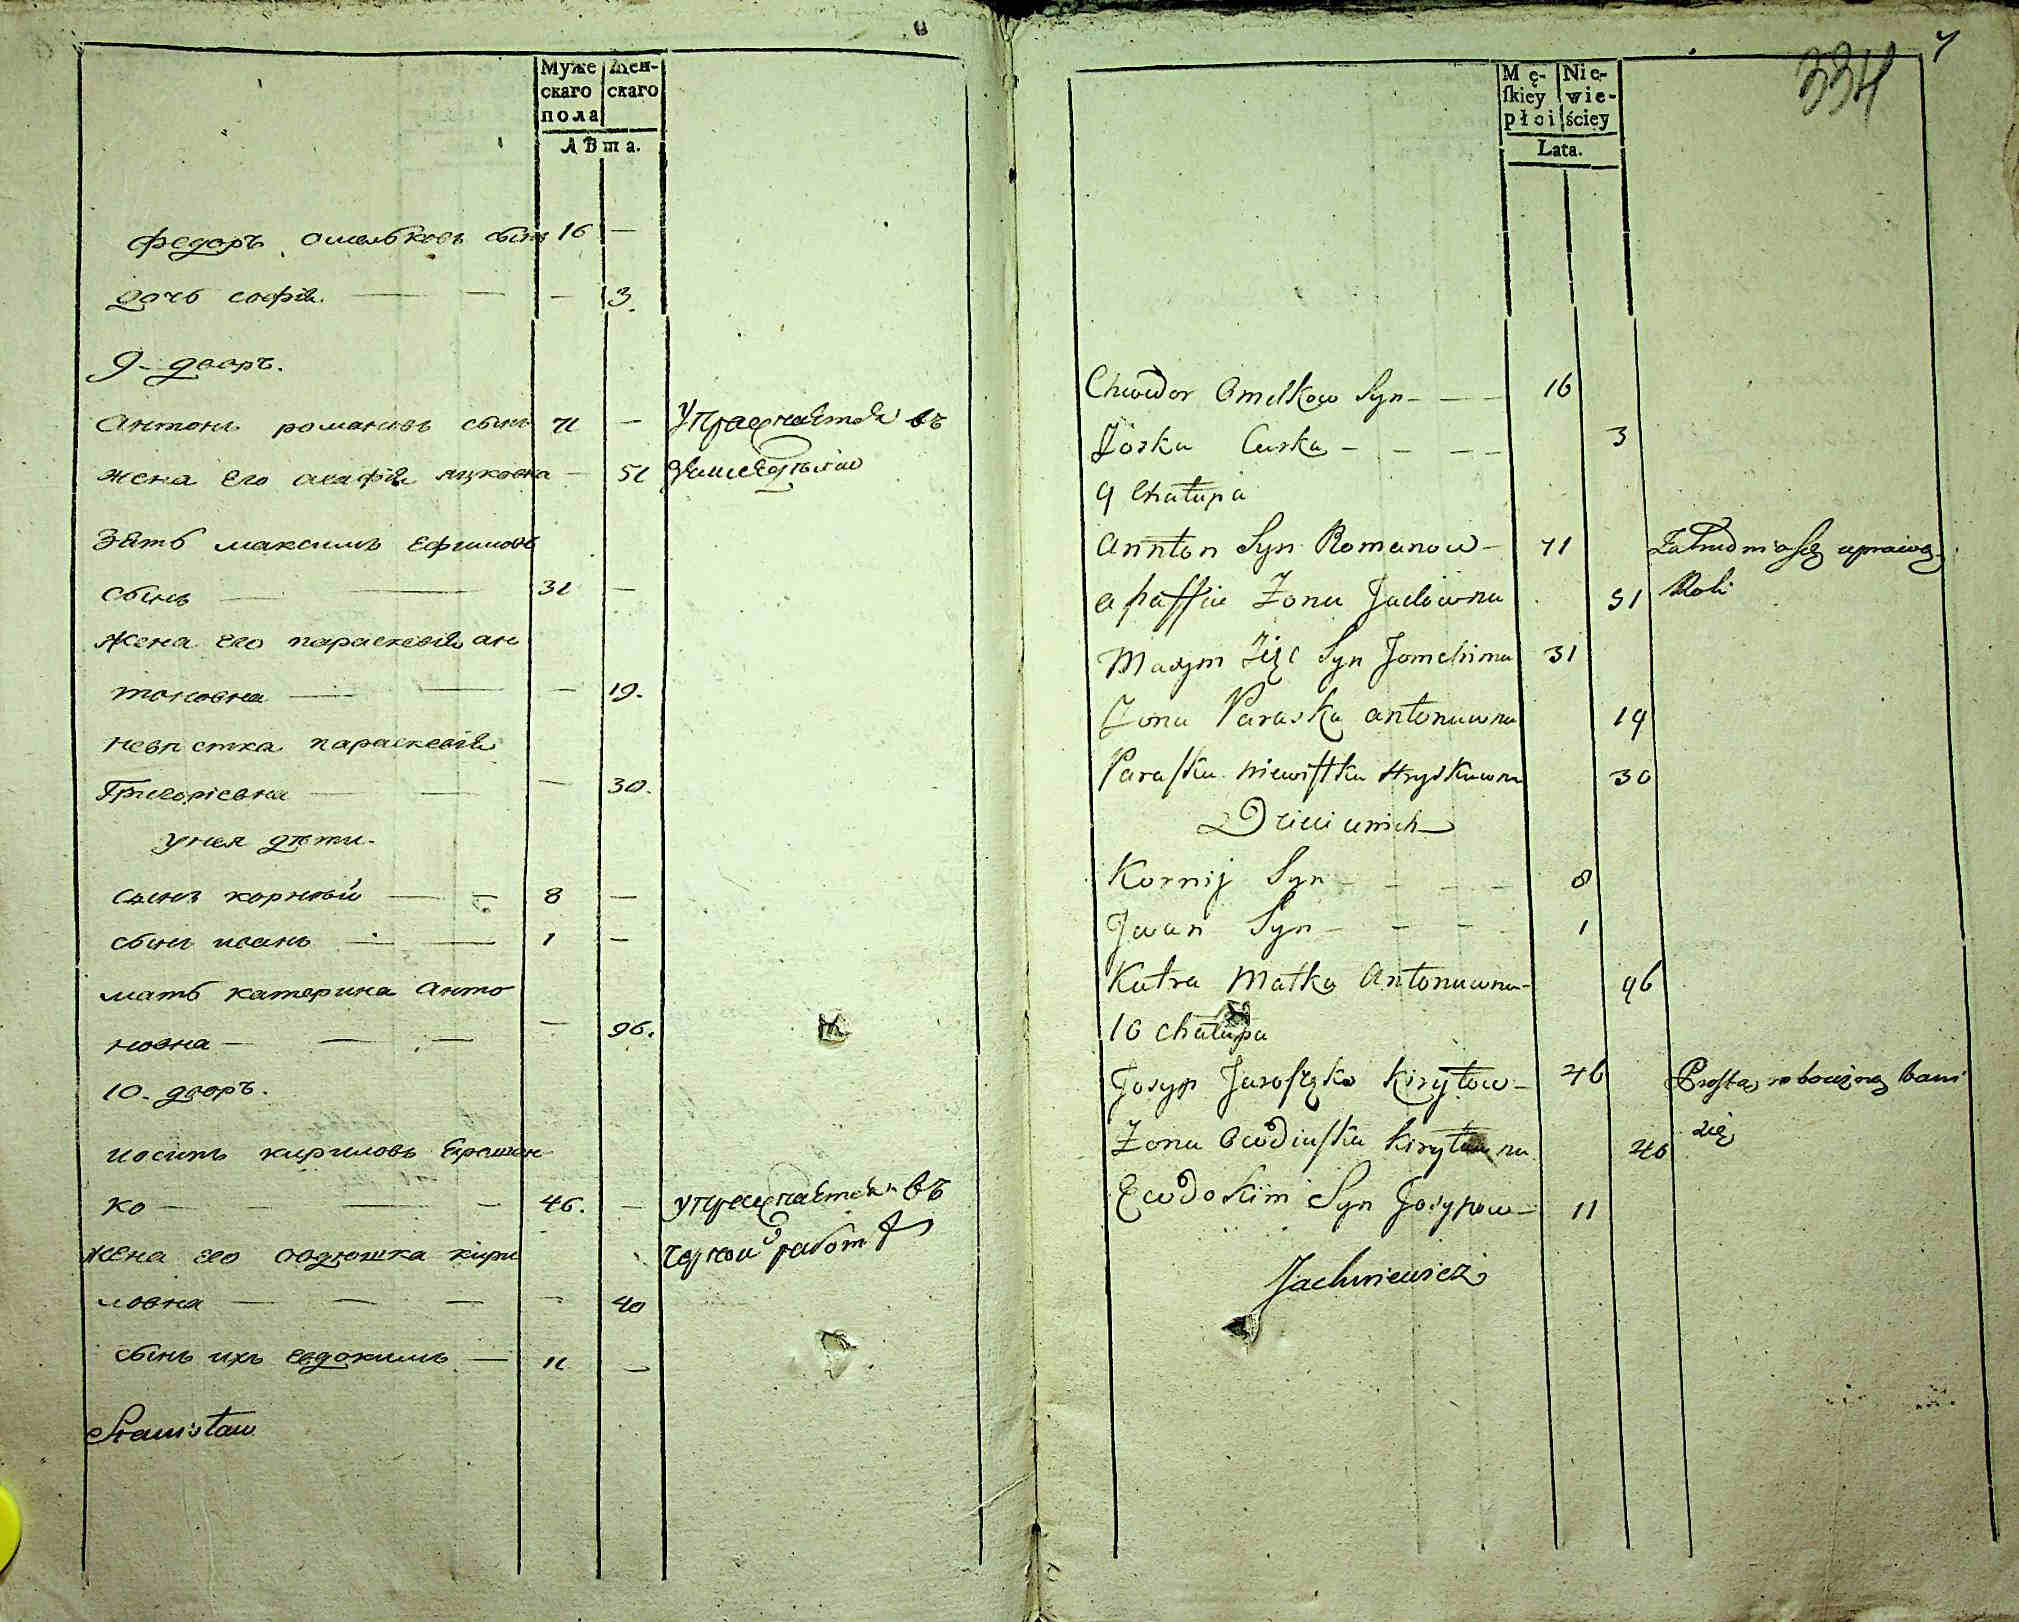 Муже Жен-
скаго скаго
пола
лѣта.
Федоръ омельковъ сынъ 16 —
дочь софія. — — — 13.
9- дворъ.
Антонъ романовъ сынъ 71 — Упражняется въ
жена его агафія яцковна — 51 земледелии
Зять максимъ ефимовъ
сынъ — — 31 —
Жена его параскевія ан
тоновна — — — 19.
невѣстка параскевія
Григоріевна — — — 30.
у нея дѣти.
сынъ корнѣй — — 8 —
сынъ иванъ — — 1 —
мать катерина анто
новна — — — — 96.
10. дворъ.
иосипъ кириловъ Ярошен
ко — — — — 46. — упражняется въ
жена его овдюшка кири черной работѣ
ловна — — — — 40
сынъ ихъ евдокимъ — 11 —
Stanisław
7
334
Mę- Nie-
skiey wie-
płci ściey
Lata.
Chwedor Omelkow Syn — — 16
Zoska Curka — — — — 3
9 Chałupa
Annton Syn Romanow — 71 Zatrudnia się uprawą
Apaffia Żona Jackowna 51 Roli
Maxym Zięc Syn Jomchima 31
Żona Paraska Antonuwna 19
Paraska niewistka Hryskuwna 30
Dzieci unich
Kornij Syn — — — — 8
Jwan Syn — — — — 1
Katra Matka Antonuwna — 96
10 chałupa
Josyp Jaroszęko Kiryłow — 46 Prostą robocizną bawi
Żona Owdiuszka Kiryłowna 40 się
Ewdokim Syn Josypow — 11
Jachniewicz